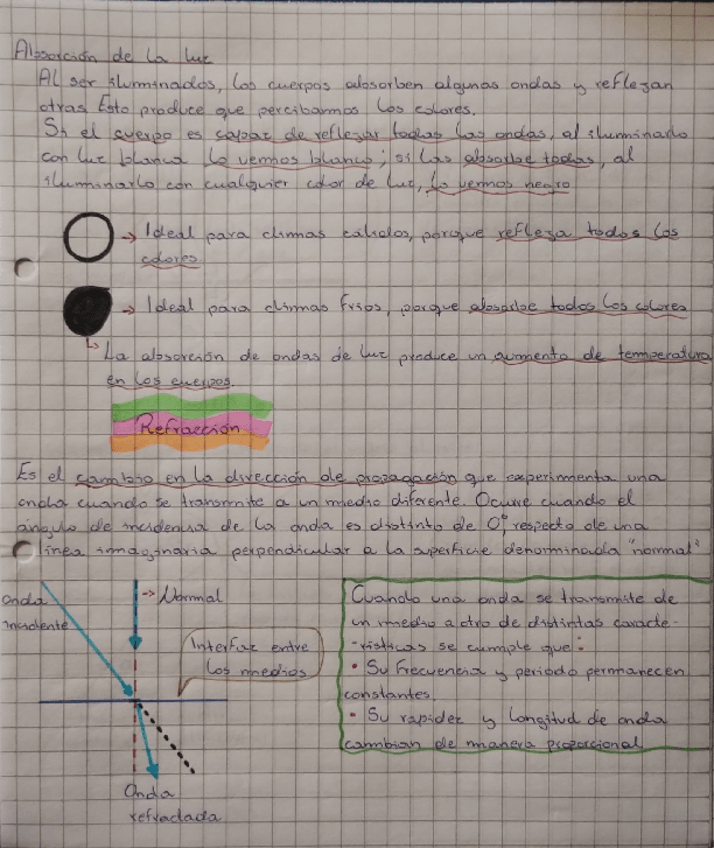 Absorción de la luz
Al ser iluminados, los cuerpos absorben algunas ondas y reflejan
otras. Esto produce que percibamos los colores.
Si el cuerpo es capaz de reflejar todas las ondas, al iluminarlo
con luz blanca lo vemos blanco; si las absorbe todas, al
iluminarlo con cualquier color de luz, lo vemos negro
→ Ideal para climas cálidos, porque refleja todos los
colores.
→ Ideal para climas fríos, porque absorbe todos los colores
↳ La absorción de ondas de luz produce un aumento de temperatura
en los cuerpos.
Refracción
Es el cambio en la dirección de propagación que experimenta una
onda cuando se transmite a un medio diferente. Ocurre cuando el
ángulo de incidencia de la onda es distinto de 0° respecto de una
línea imaginaria perpendicular a la superficie denominada "normal"
Onda
incidente
--> Normal
Interfaz entre
los medios
Onda
refractada
Cuando una onda se transmite de
un medio a otro de distintas caracte-
-rísticas se cumple que:
• Su frecuencia y periodo permanecen
constantes.
• Su rapidez y longitud de onda
cambian de manera proporcional